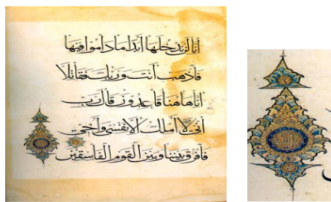 انا لن ندخلها ابدا ما داموا فيها
فاذهب انت وربك فقاتلا
انا هاهنا قاعدون قال رب
انى لا املك الا نفسى واخى
فافرق بيننا وبين القوم الفاسقين